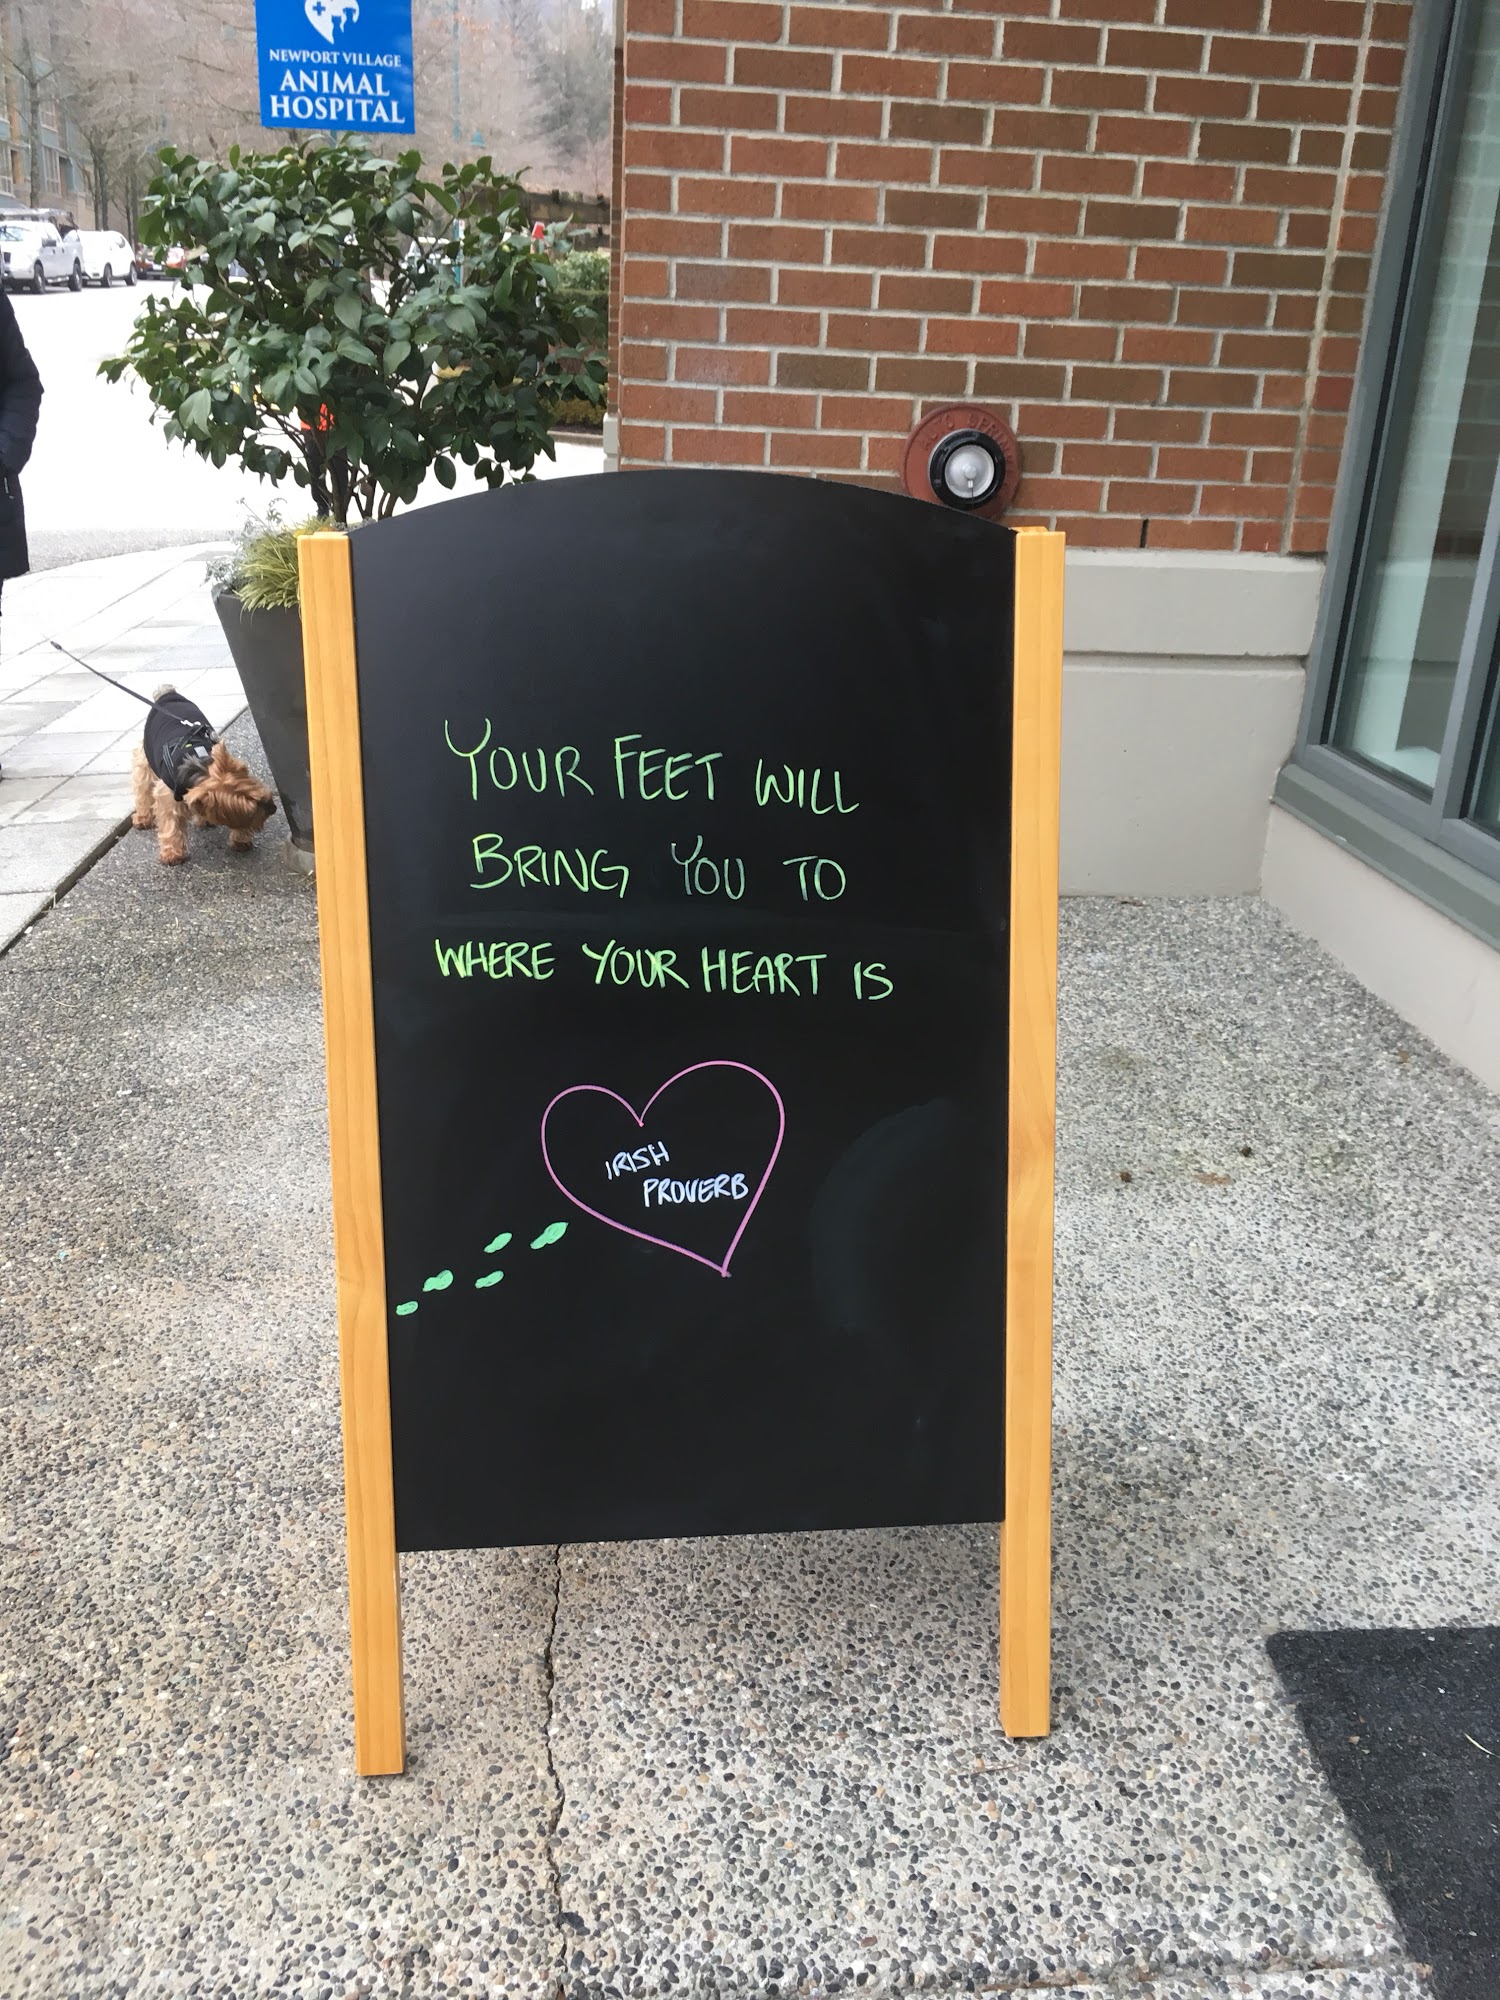 NEWPORT VILLAGE
ANIMAL
HOSPITAL
AUTO SPRINKLER
YOUR FEET WILL
BRING YOU TO
WHERE YOUR HEART IS
IRISH
PROVERB